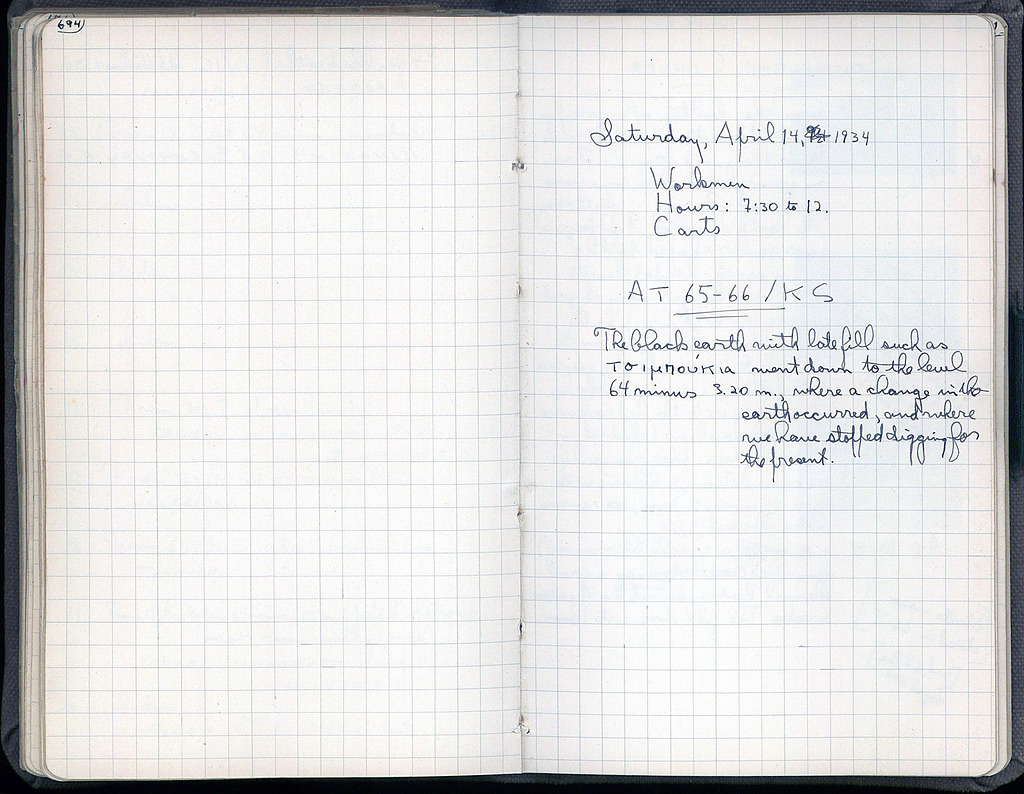 694
Saturday, April 14, 1934
Workmen
Hours: 7:30 to 12.
Carts
AT 65-66 / KS
The black earth with late fill such as
τσιμπούκια went down to the level
64 minus 3.20 m., where a change in the
earth occurred, and where
we have stopped digging for
the present.